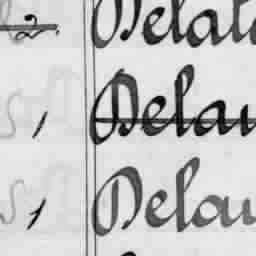 2. Delat
1 Delau
1 Delau